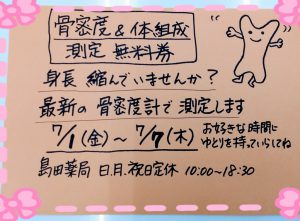 骨密度&体組成
測定 無料券
身長 縮んでいませんか?
最新の骨密度計で測定します
7/1(金)~7/7(木)
お好きな時間に
ゆとりを持っていらしてね
島田薬局 日.月.祝日定休 10:00~18:30